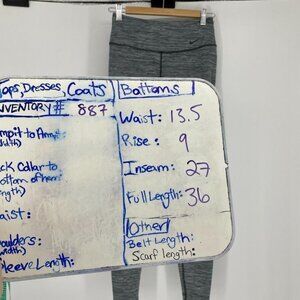 Tops, Dresses, Coats
INVENTORY# 887
Armpit to Armpit:
(width)
Back Collar to
Bottom of hem:
(length)
Waist:
Shoulders:
(width)
Sleeve Length:
Bottoms
Waist: 13.5
Rise: 9
Inseam: 27
Full Length: 36
Other
Belt Length:
Scarf length: